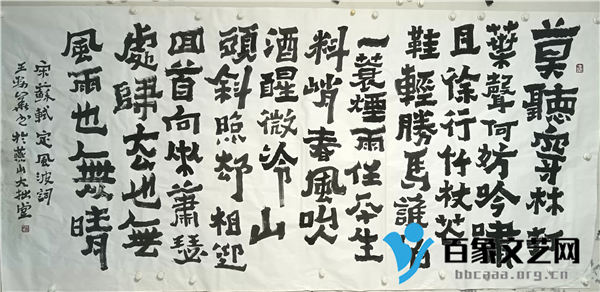 莫聽穿林打
葉聲何妨吟嘯
且徐行竹杖芒
鞋輕勝馬誰怕
一蓑煙雨任平生
料峭春風吹
酒醒微冷山
頭斜照却相迎
回首向來蕭瑟
處歸去也無
風雨也無晴
宋蘇軾定風波詞
書於燕山大拙堂
百象文艺网
bbcaaa.org.cn